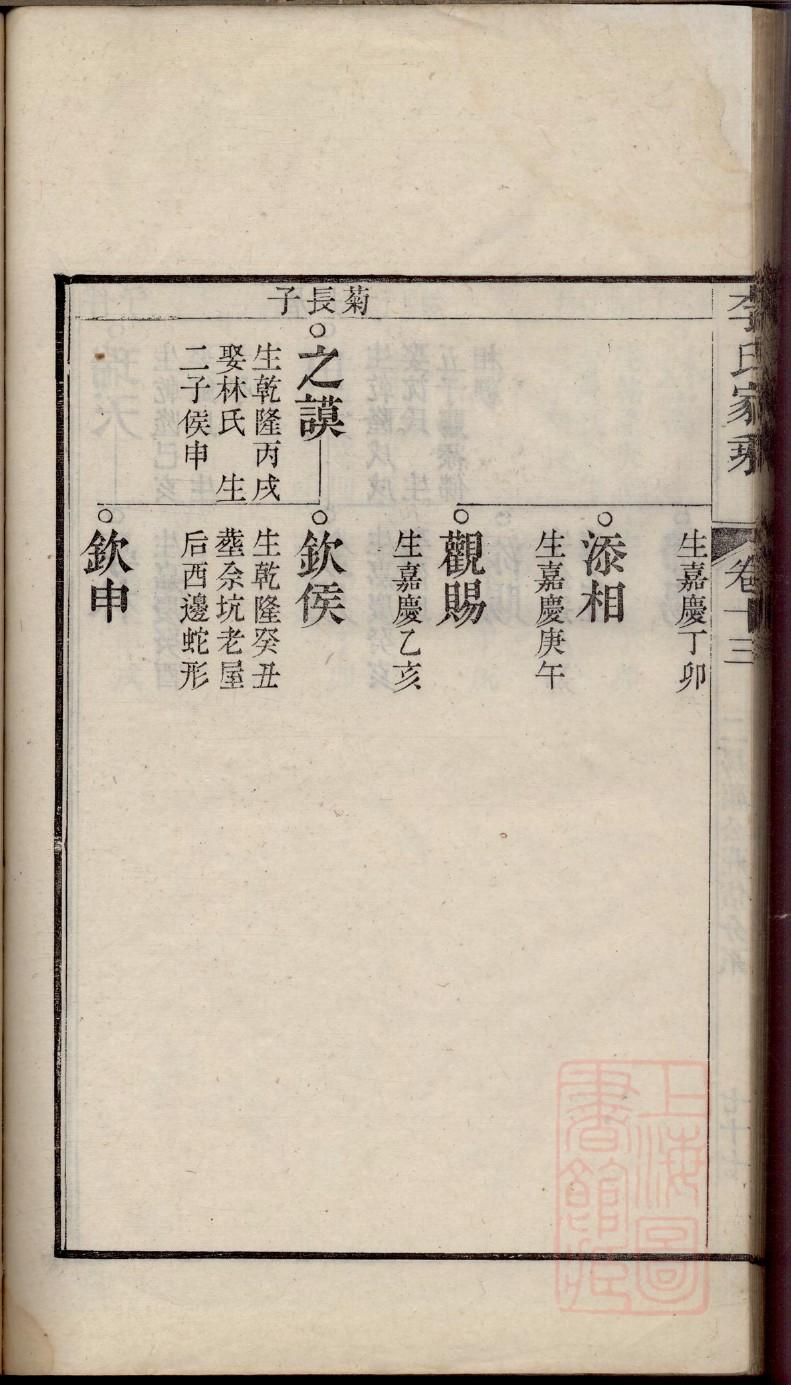 李氏家乘
卷十三
生嘉慶丁卯
添相
生嘉慶庚午
觀賜
生嘉慶乙亥
菊長子
之謨
生乾隆丙戌
娶林氏 生
二子侯申
欽侯
生乾隆癸丑
塟佘坑老屋
后西邊蛇形
欽申
上海圖書館藏